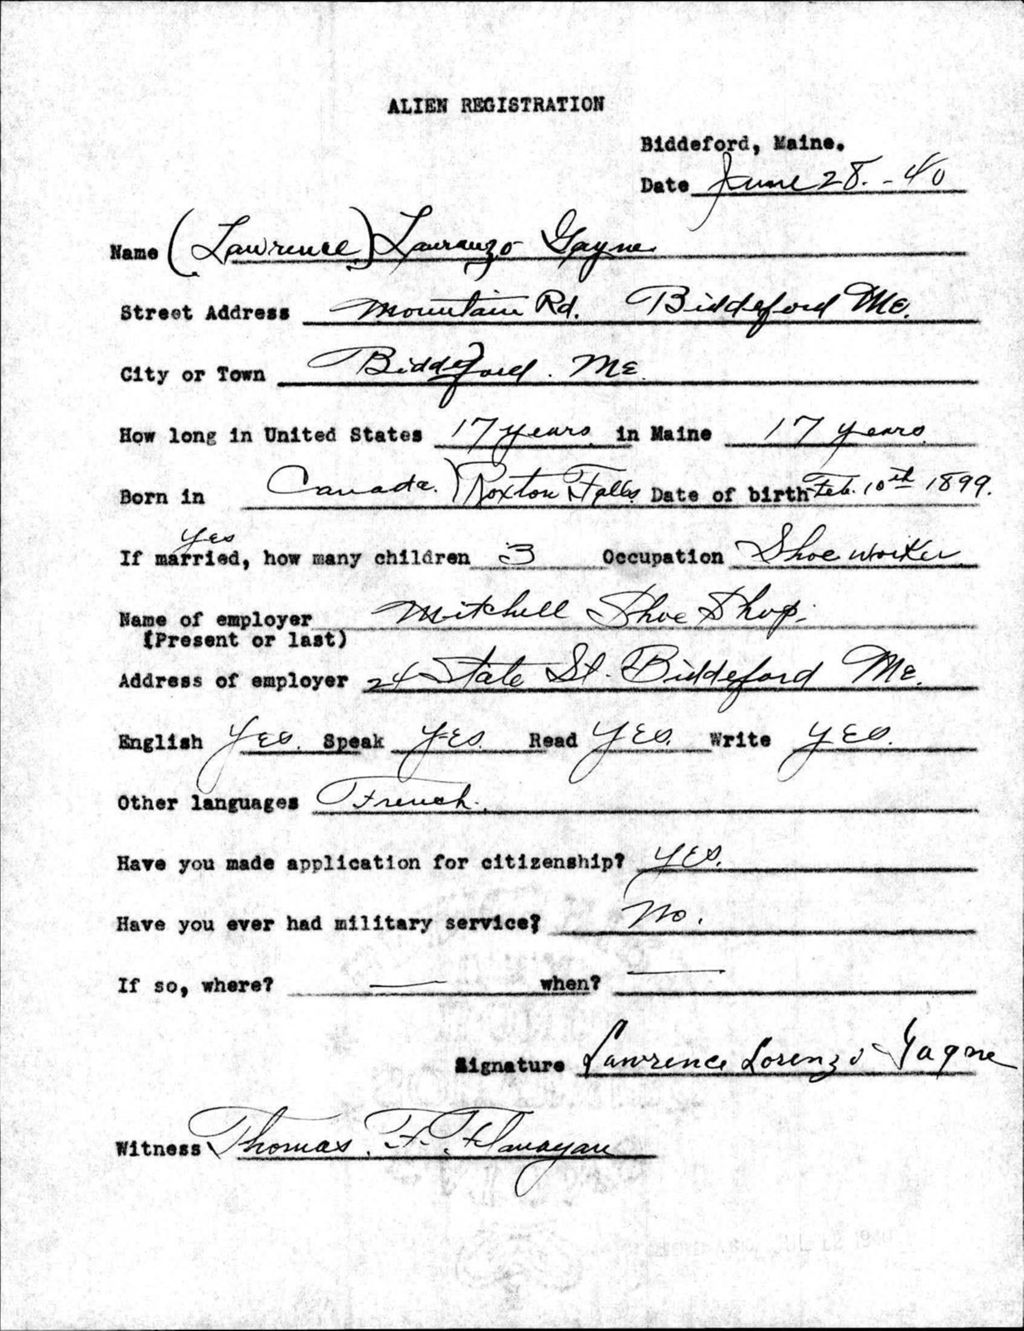 ALIEN REGISTRATION
Biddeford, Maine.
Date June 28. - 40
Name (Lawrence) Lauranzo Gagne
Street Address Mountain Rd. Biddeford Me.
City or Town Biddeford. Me.
How long in United States 17 years. in Maine 17 years
Born in Canada. Roxton Falls Date of birth Feb. 10th 1899.
Yes
If married, how many children 3 Occupation Shoe worker
Name of employer Mitchell Shoe Shop.
(Present or last)
Address of employer 24 State St. Biddeford Me.
English Yes. Speak Yes. Read Yes. Write Yes.
Other languages French.
Have you made application for citizenship? Yes.
Have you ever had military service? No.
If so, where? — when? —
Signature Lawrence Lorenzo Gagne
Witness Thomas F. Flanagan